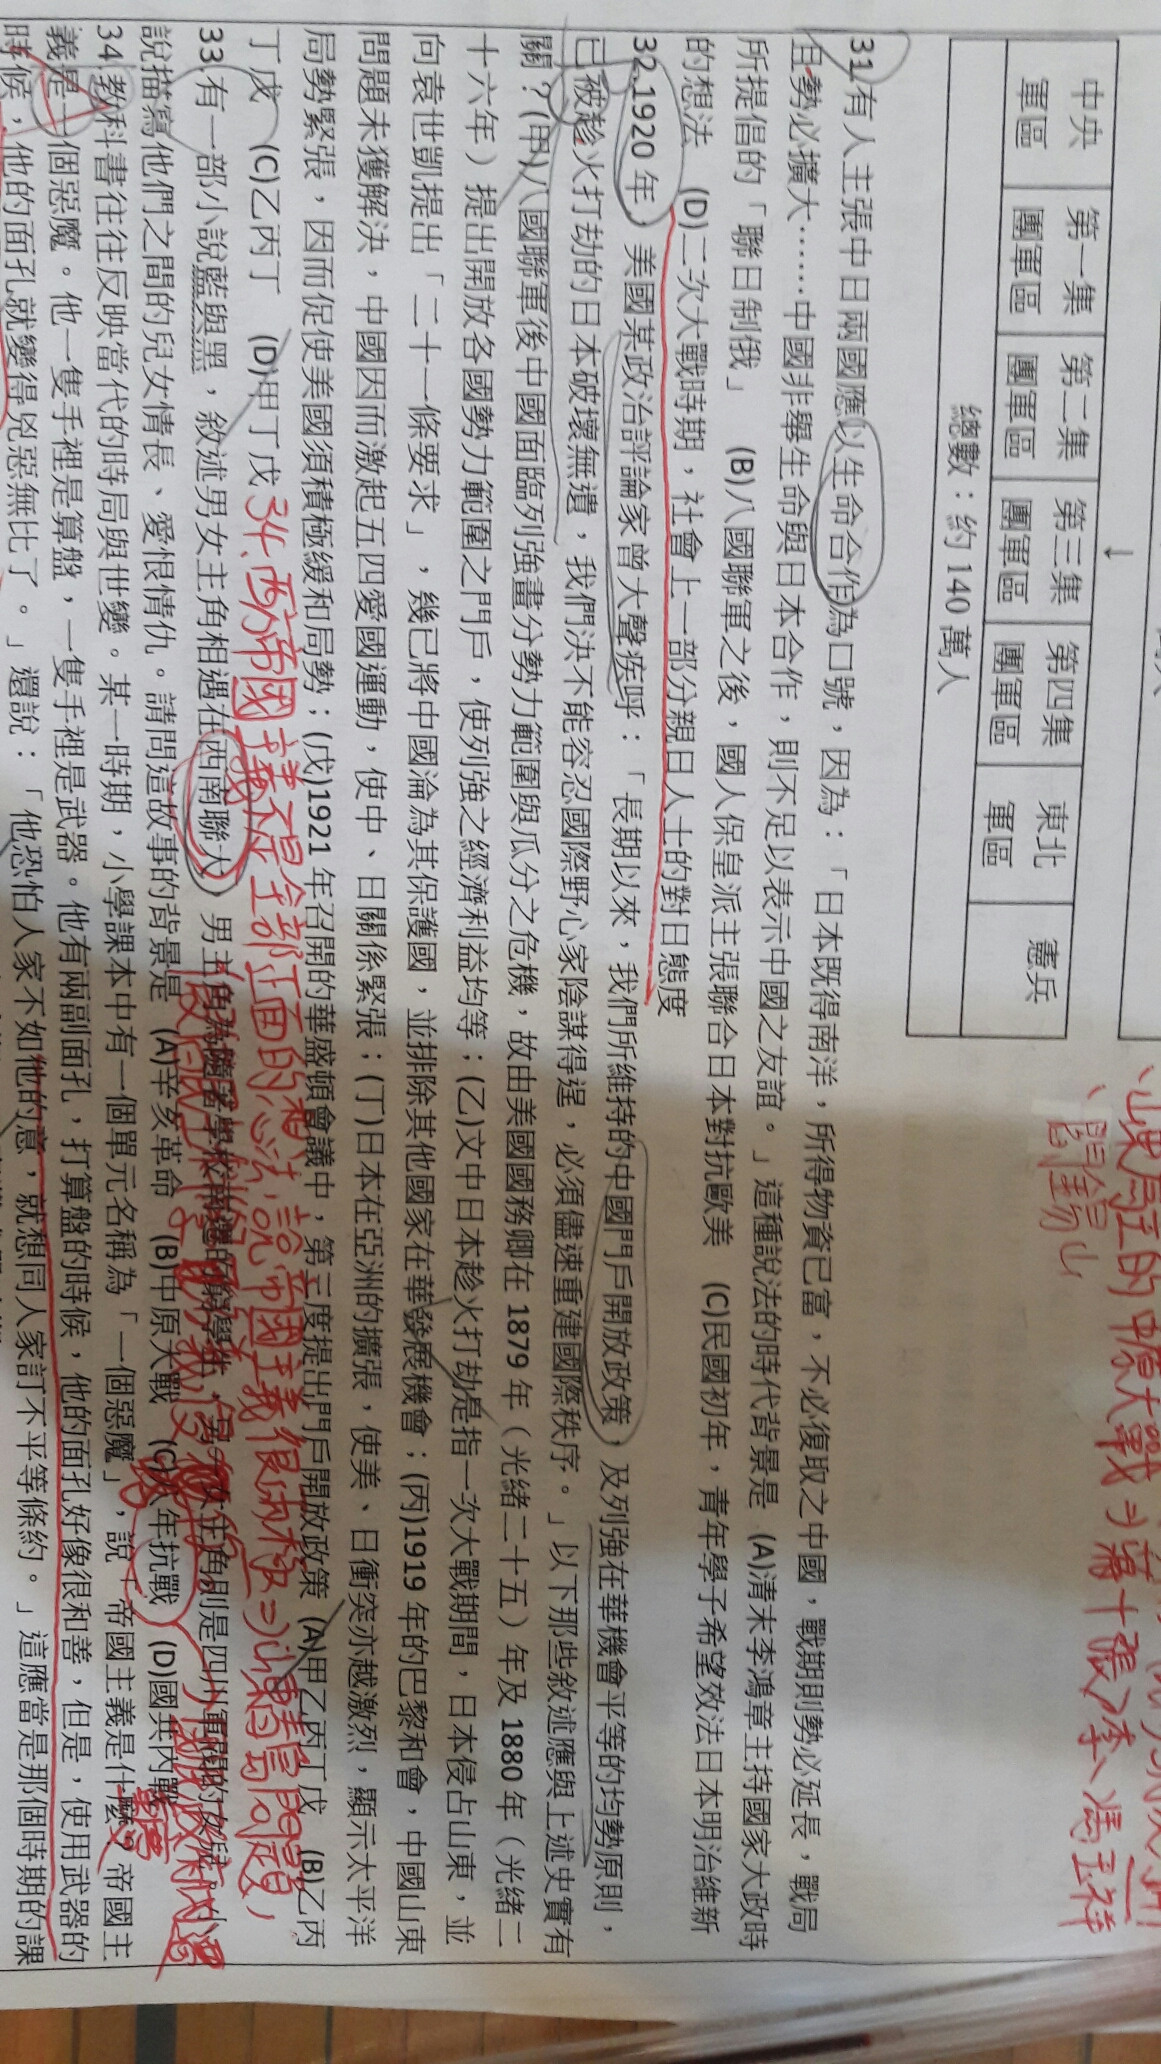 中央軍區 第一集團軍區 第二集團軍區 第三集團軍區 第四集團軍區 東北軍區 憲兵
總數：約 140 萬人
中原大戰⇒蔣+張 李、馮玉祥
、閻錫山
31.有人主張中日兩國應以生命合作為口號，因為：「日本既得南洋，所得物資已富，不必復取之中國，戰期則勢必延長，戰局
且勢必擴大……中國非舉生命與日本合作，則不足以表示中國之友誼。」這種說法的時代背景是 (A)清末李鴻章主持國家大政時
所提倡的「聯日制俄」 (B)八國聯軍之後，國人保皇派主張聯合日本對抗歐美 (C)民國初年，青年學子希望效法日本明治維新
的想法 (D)二次大戰時期，社會上一部分親日人士的對日態度
32.1920 年，美國某政治評論家曾大聲疾呼：「長期以來，我們所維持的中國門戶開放政策，及列強在華機會平等的均勢原則，
已被趁火打劫的日本破壞無遺，我們決不能容忍國際野心家陰謀得逞，必須儘速重建國際秩序。」以下那些敘述應與上述史實有
關？(甲)八國聯軍後中國面臨列強畫分勢力範圍與瓜分之危機，故由美國國務卿在 1879 年（光緒二十五）年及 1880 年（光緒二
十六年）提出開放各國勢力範圍之門戶，使列強之經濟利益均等；(乙)文中日本趁火打劫是指一次大戰期間，日本侵占山東，並
向袁世凱提出「二十一條要求」，幾已將中國淪為其保護國，並排除其他國家在華發展機會；(丙)1919 年的巴黎和會，中國山東
問題未獲解決，中國因而激起五四愛國運動，使中、日關係緊張；(丁)日本在亞洲的擴張，使美、日衝突亦越激烈，顯示太平洋
局勢緊張，因而促使美國須積極緩和局勢；(戊)1921 年召開的華盛頓會議中，第三度提出門戶開放政策 (A)甲乙丙丁戊 (B)乙丙
丁戊 (C)乙丙丁 (D)甲丁戊
34.西方帝國主義不是全部正面的想法,說帝國主義很兩極
33.有一部小說藍與黑，敘述男女主角相遇在西南聯大，男主角為隨著學校南遷的窮學生，另一女主角則是四川軍閥的女兒。小
說描寫他們之間的兒女情長、愛恨情仇。請問這故事的背景是 (A)辛亥革命 (B)中原大戰 (C)八年抗戰 (D)國共內戰
34.教科書往往反映當代的時局與世變。某一時期，小學課本中有一個單元名稱為「一個惡魔」，說「帝國主義是什麼？帝國主
義是一個惡魔。他一隻手裡是算盤，一隻手裡是武器。他有兩副面孔，打算盤的時候，他的面孔好像很和善，但是，使用武器的
時候，他的面孔就變得兇惡無比了。」還說：「他恐怕人家不如他的意，就想同人家訂不平等條約。」這應當是那個時期的課